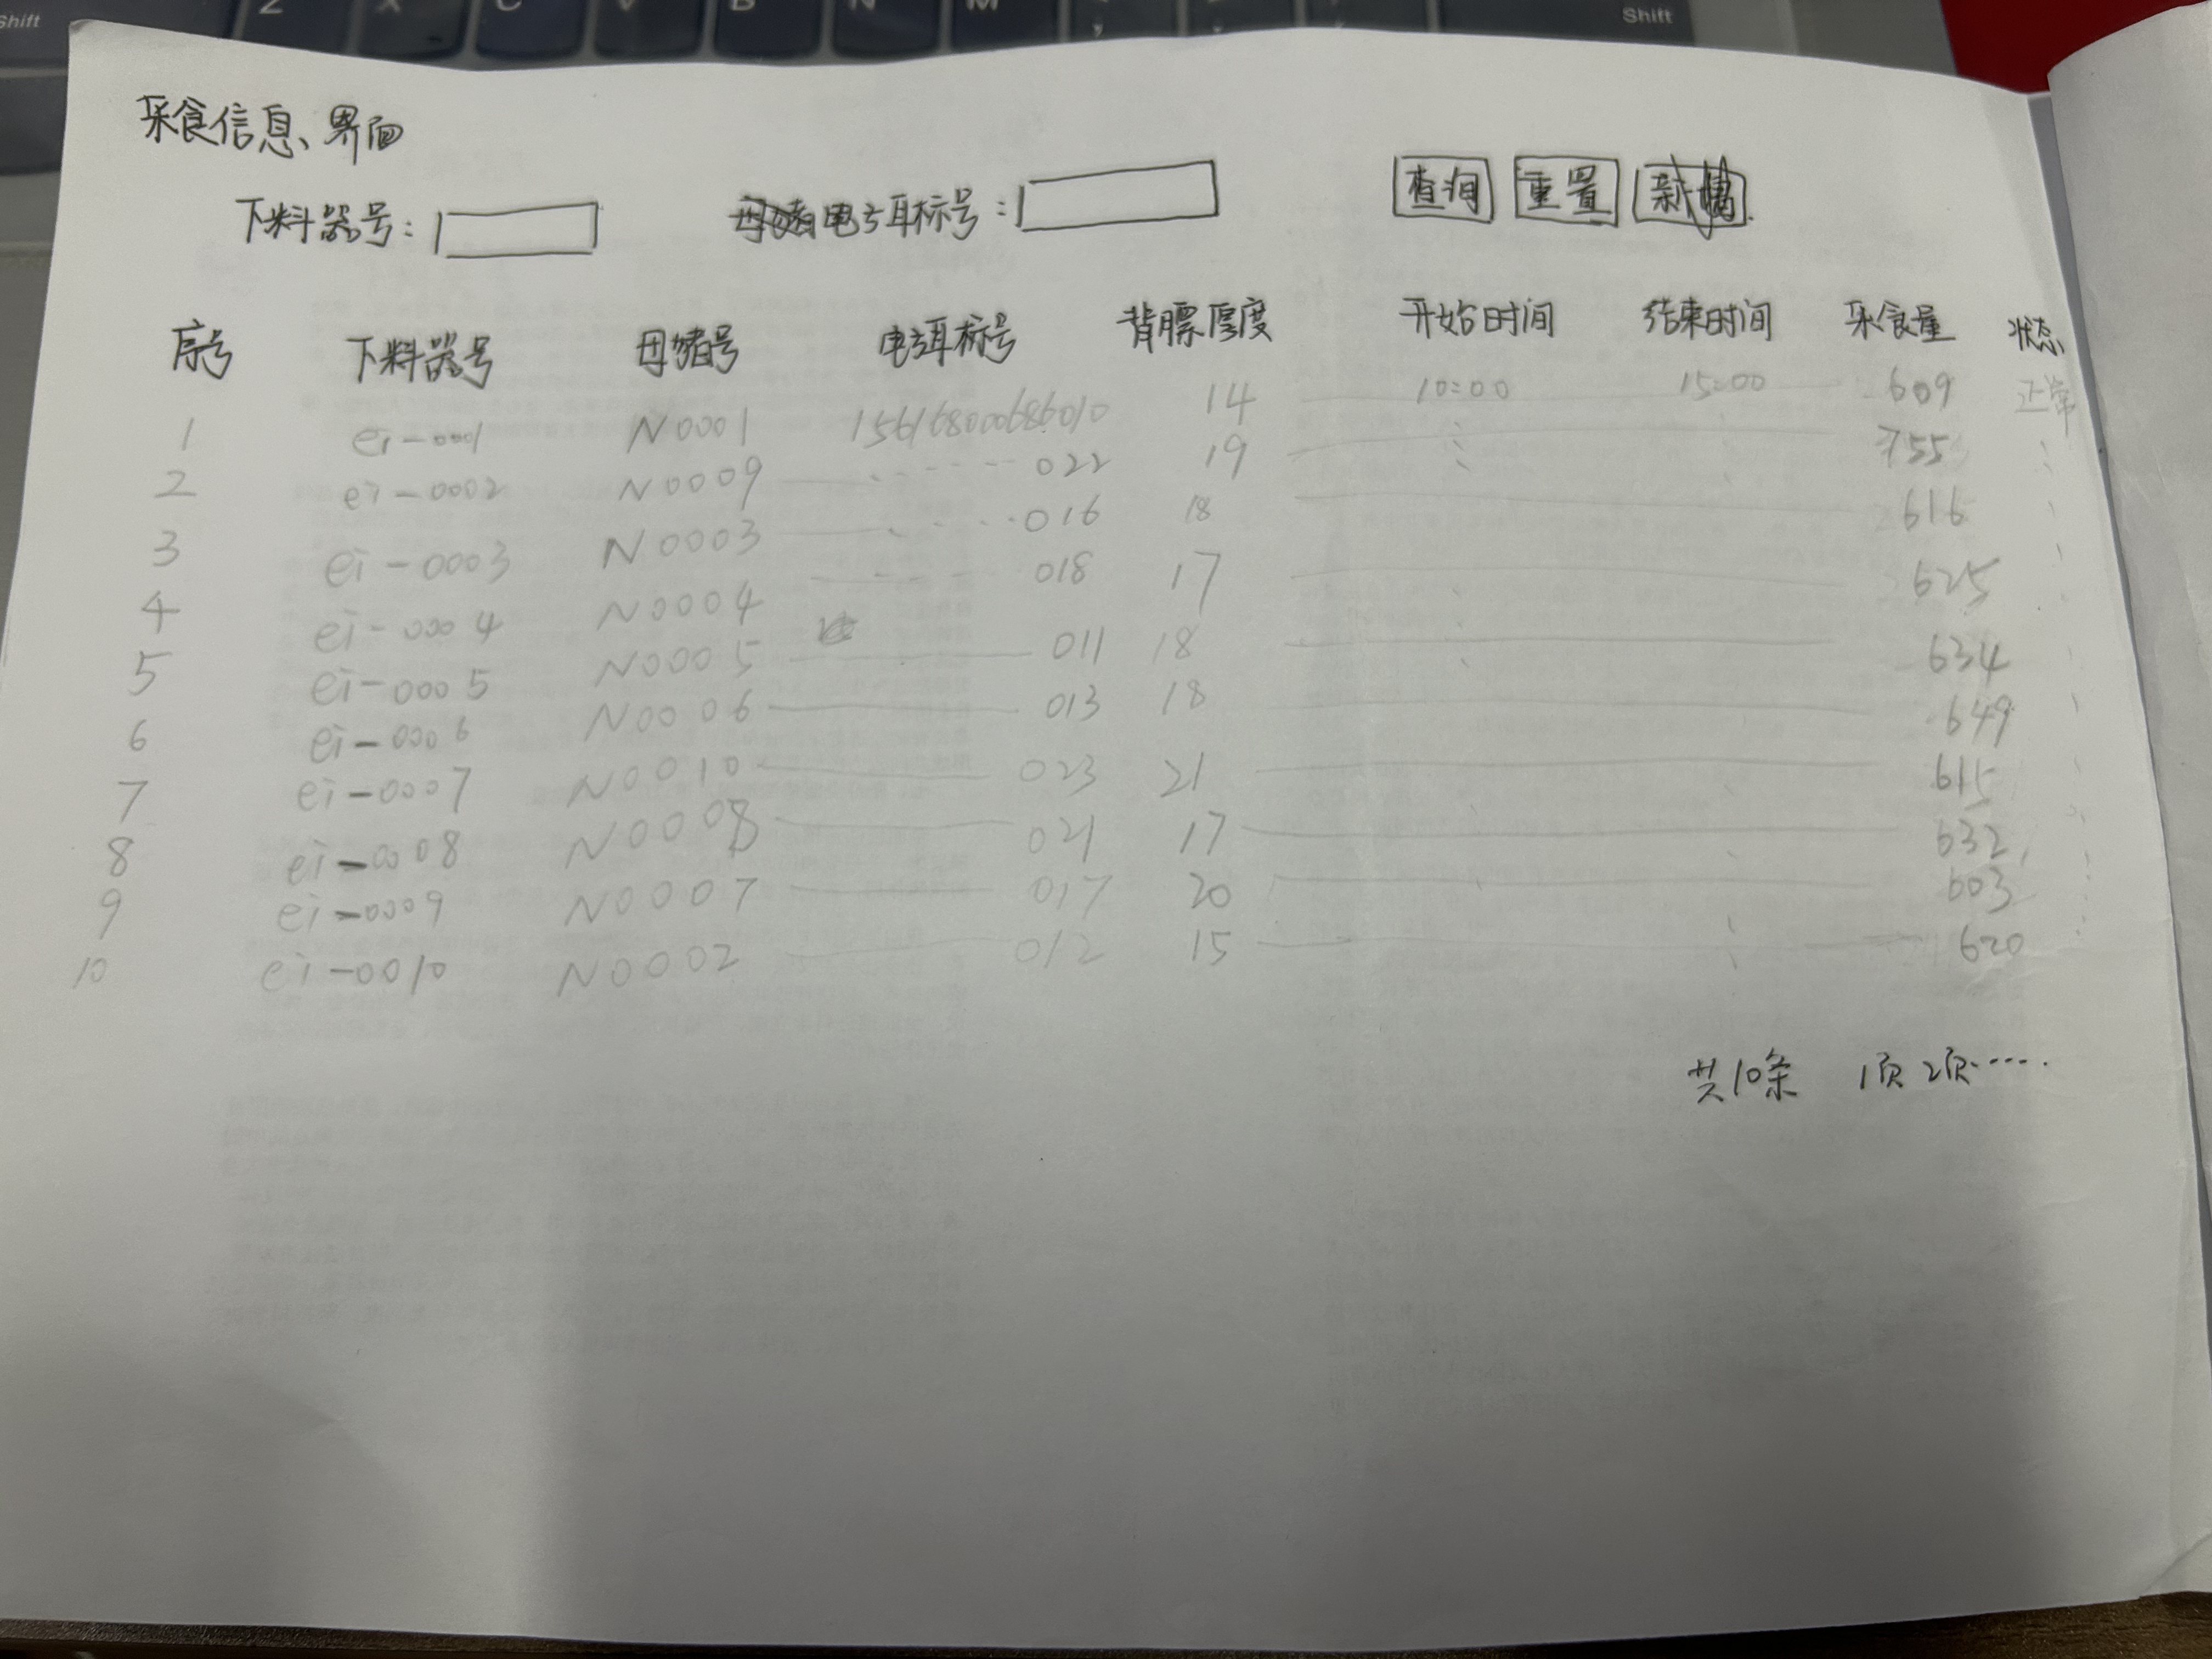 Shift Z X C V B N M Shift
采食信息界面
下料器号: 电子耳标号: 查询 重置
序号 下料器号 母猪号 电子耳标号 背膘厚度 开始时间 结束时间 采食量 状态
1 ei-0001 N0001 156168000686010 14 10:00 15:00 609 正常
2 ei-0002 N0009 022 19 755
3 ei-0003 N0003 016 18 616
4 ei-0004 N0004 018 17 625
5 ei-0005 N0005 011 18 634
6 ei-0006 N0006 013 18 649
7 ei-0007 N0010 023 21 615
8 ei-0008 N0008 021 17 632
9 ei-0009 N0007 017 20 603
10 ei-0010 N0002 012 15 620
共10条 1页 2页……